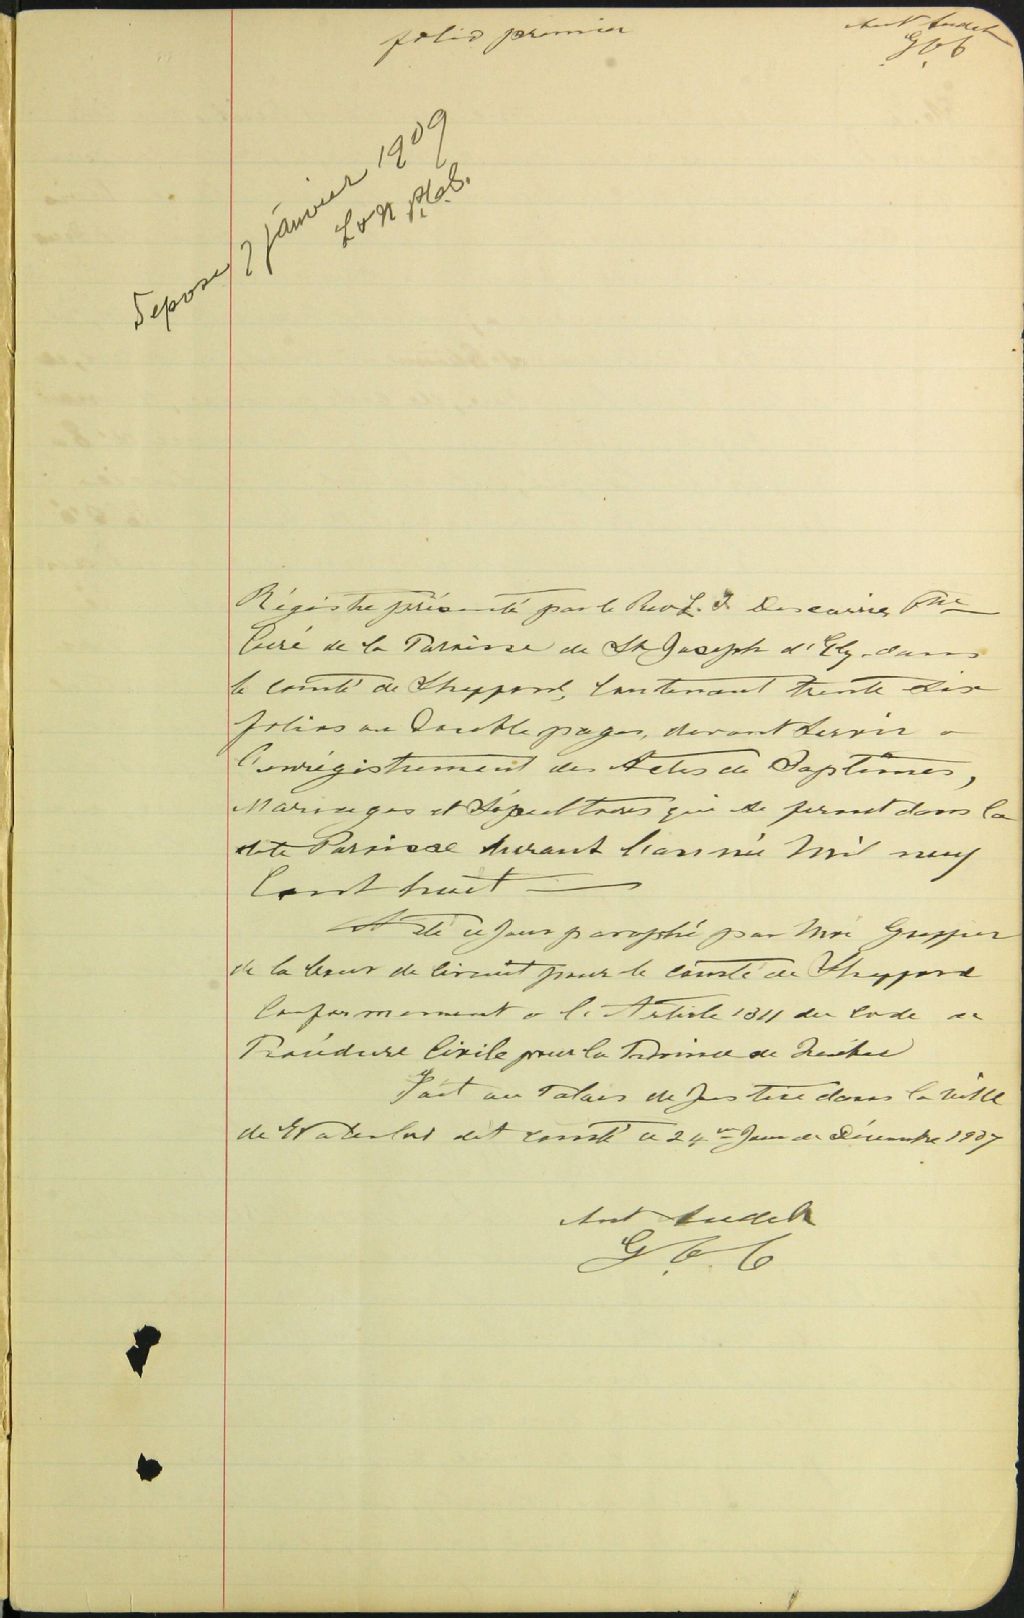 folio premier
Ant Audet
G C C
Depose 7 janvier 1909
L & N P.C.S.
Régistre présenté par le Rev L. J. Descarries Ptre
Curé de la Paroisse de St Joseph d'Ely dans
le comté de Shefford, Contenant trente six
folios ou Double pages, devant servir a
l'enrégistrement des Actes de Baptêmes,
Mariages et Sépultures qui se feront dans la
dite Paroisse durant l'année Mil neuf
Cent huit
A été ce jour paraphé par Moi Greffier
de la Cour de Circuit pour le comté de Shefford
Conformement a l'Article 1311 du Code de
Procédure Civile pour la Province de Québec
Fait au Palais de Justice dans la Ville
de Waterloo dit comté ce 24me Jour de Décembre 1907
Ant Audet
G C C